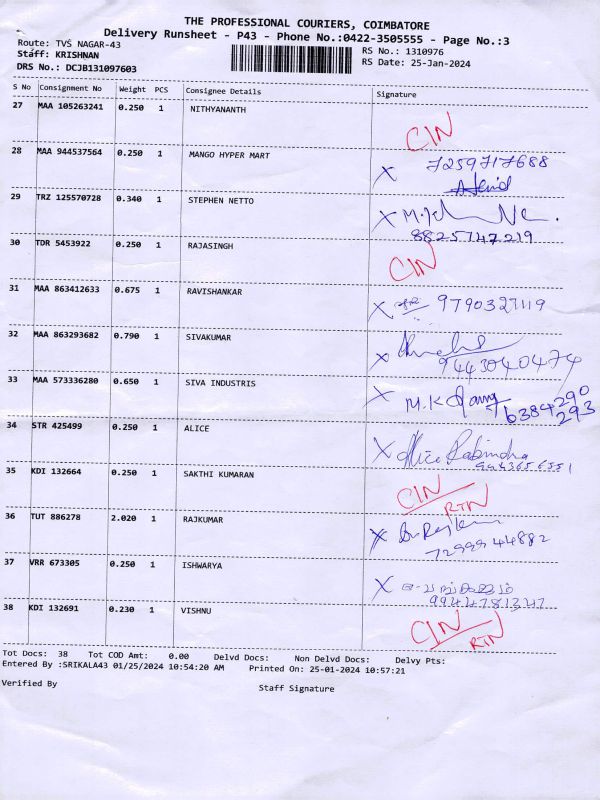 THE PROFESSIONAL COURIERS, COIMBATORE
Delivery Runsheet - P43 - Phone No.:0422-3505555 - Page No.:3
Route: TVS NAGAR-43 RS No.: 1310976
Staff: KRISHNAN RS Date: 25-Jan-2024
DRS No.: DCJB131097603
S No Consignment No Weight PCS Consignee Details Signature
27 MAA 105263241 0.250 1 NITHYANANTH
CIN
28 MAA 944537564 0.250 1 MANGO HYPER MART
X 7259717688
29 TRZ 125570728 0.340 1 STEPHEN NETTO
X
8825747219
30 TDR 5453922 0.250 1 RAJASINGH
CIN
31 MAA 863412633 0.675 1 RAVISHANKAR
X 9790327119
32 MAA 863293682 0.790 1 SIVAKUMAR
X 9443040474
33 MAA 573336280 0.650 1 SIVA INDUSTRIS
X M.K 6384290
293
34 STR 425499 0.250 1 ALICE
X Alice Rabindra
35 KDI 132664 0.250 1 SAKTHI KUMARAN
CIN
RTN
36 TUT 886278 2.020 1 RAJKUMAR
X
7299944882
37 VRR 673305 0.250 1 ISHWARYA
X
9944781347
38 KDI 132691 0.230 1 VISHNU
CIN
RTN
Tot Docs: 38 Tot COD Amt: 0.00 Delvd Docs: Non Delvd Docs: Delvy Pts:
Entered By :SRIKALA43 01/25/2024 10:54:20 AM Printed On: 25-01-2024 10:57:21
Verified By Staff Signature